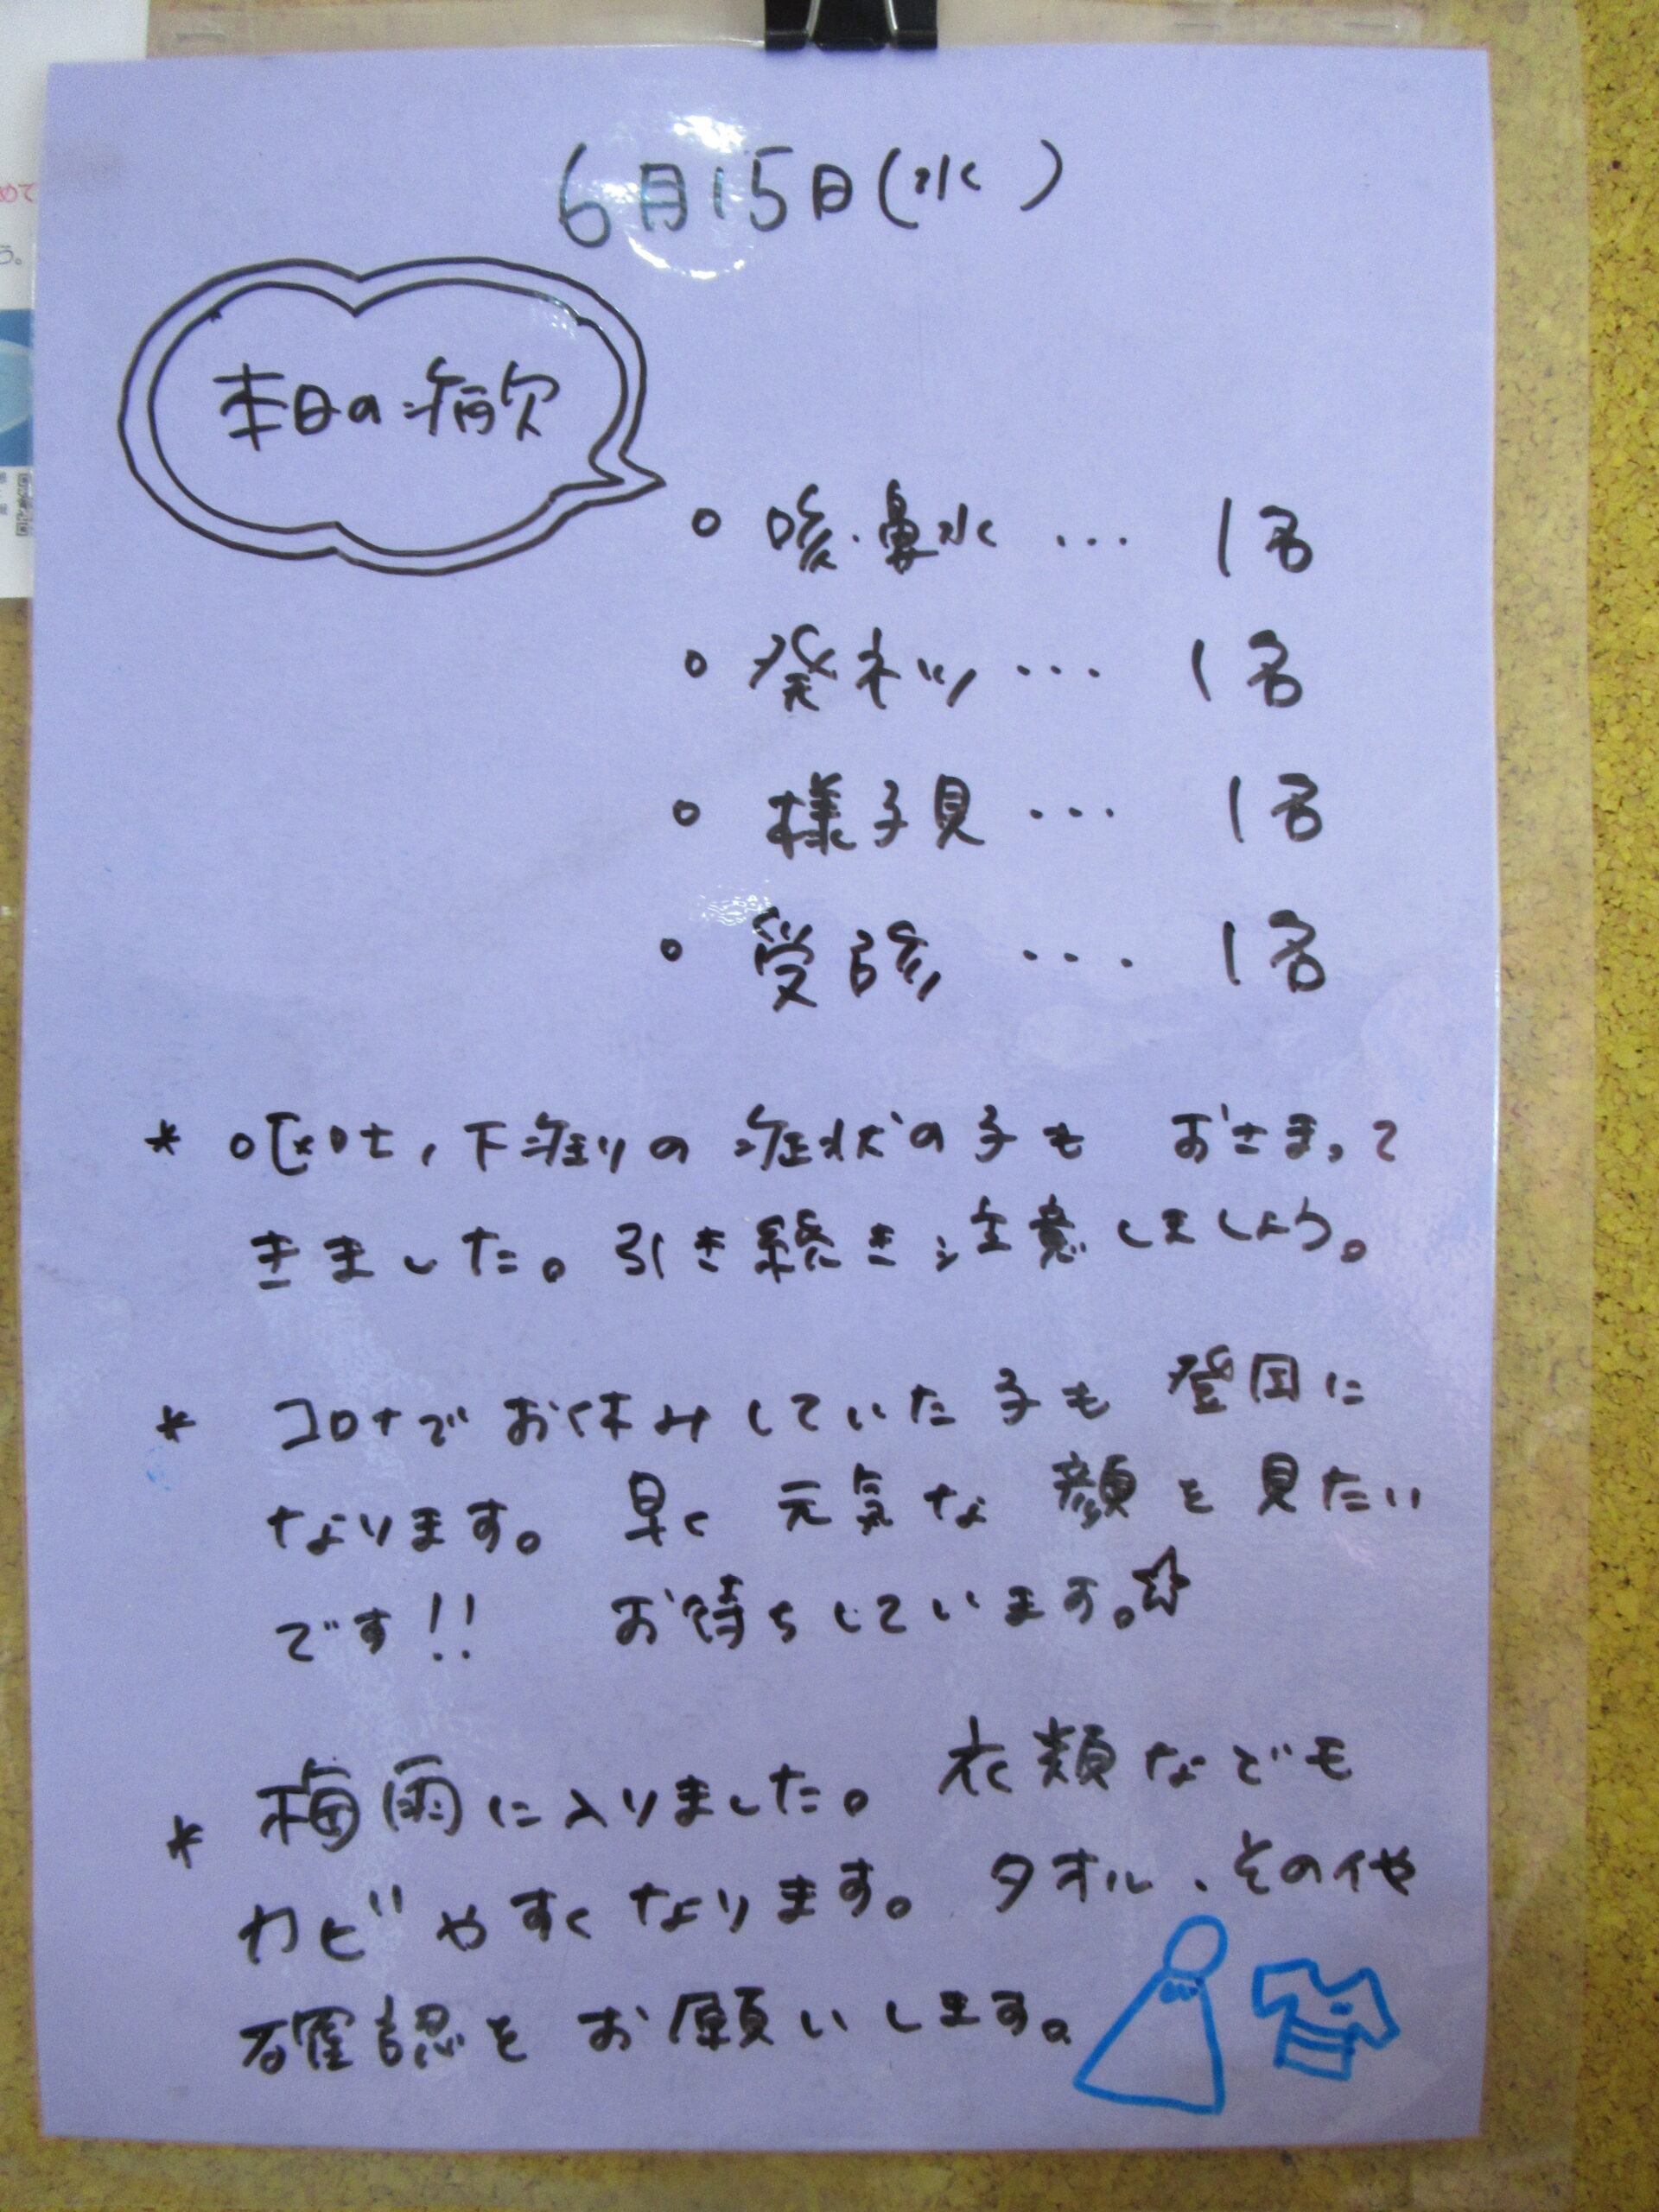 6月15日(水)
本日の病欠
○ 咳・鼻水 ... 1名
○ 発ネツ ... 1名
○ 様子見 ... 1名
○ 受診 ... 1名
* 嘔吐、下痢の症状の子も おさまって
きました。引き続き注意しましょう。
* コロナでお休みしていた子も登园に
なります。 早く 元気な 顔を見たい
です!! お待ちしています。☆
* 梅雨に入りました。衣類なども
カビやすくなります。タオル、その他
確認をお願いします。
めて
う。